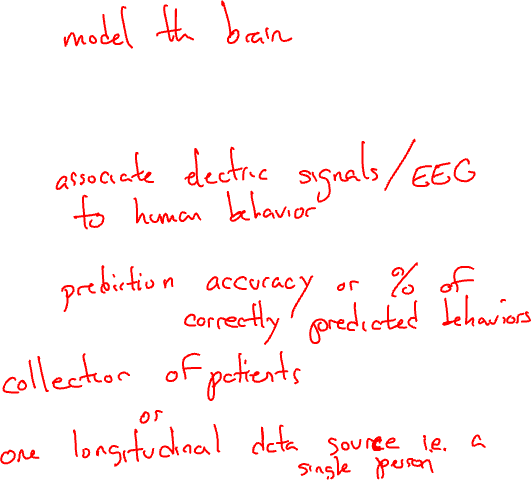 model th brain
associate electric signals/EEG
to human behavior
prediction accuracy or % of
correctly predicted behaviors
collection of patients
or
one longitudinal data source i.e. a
single person